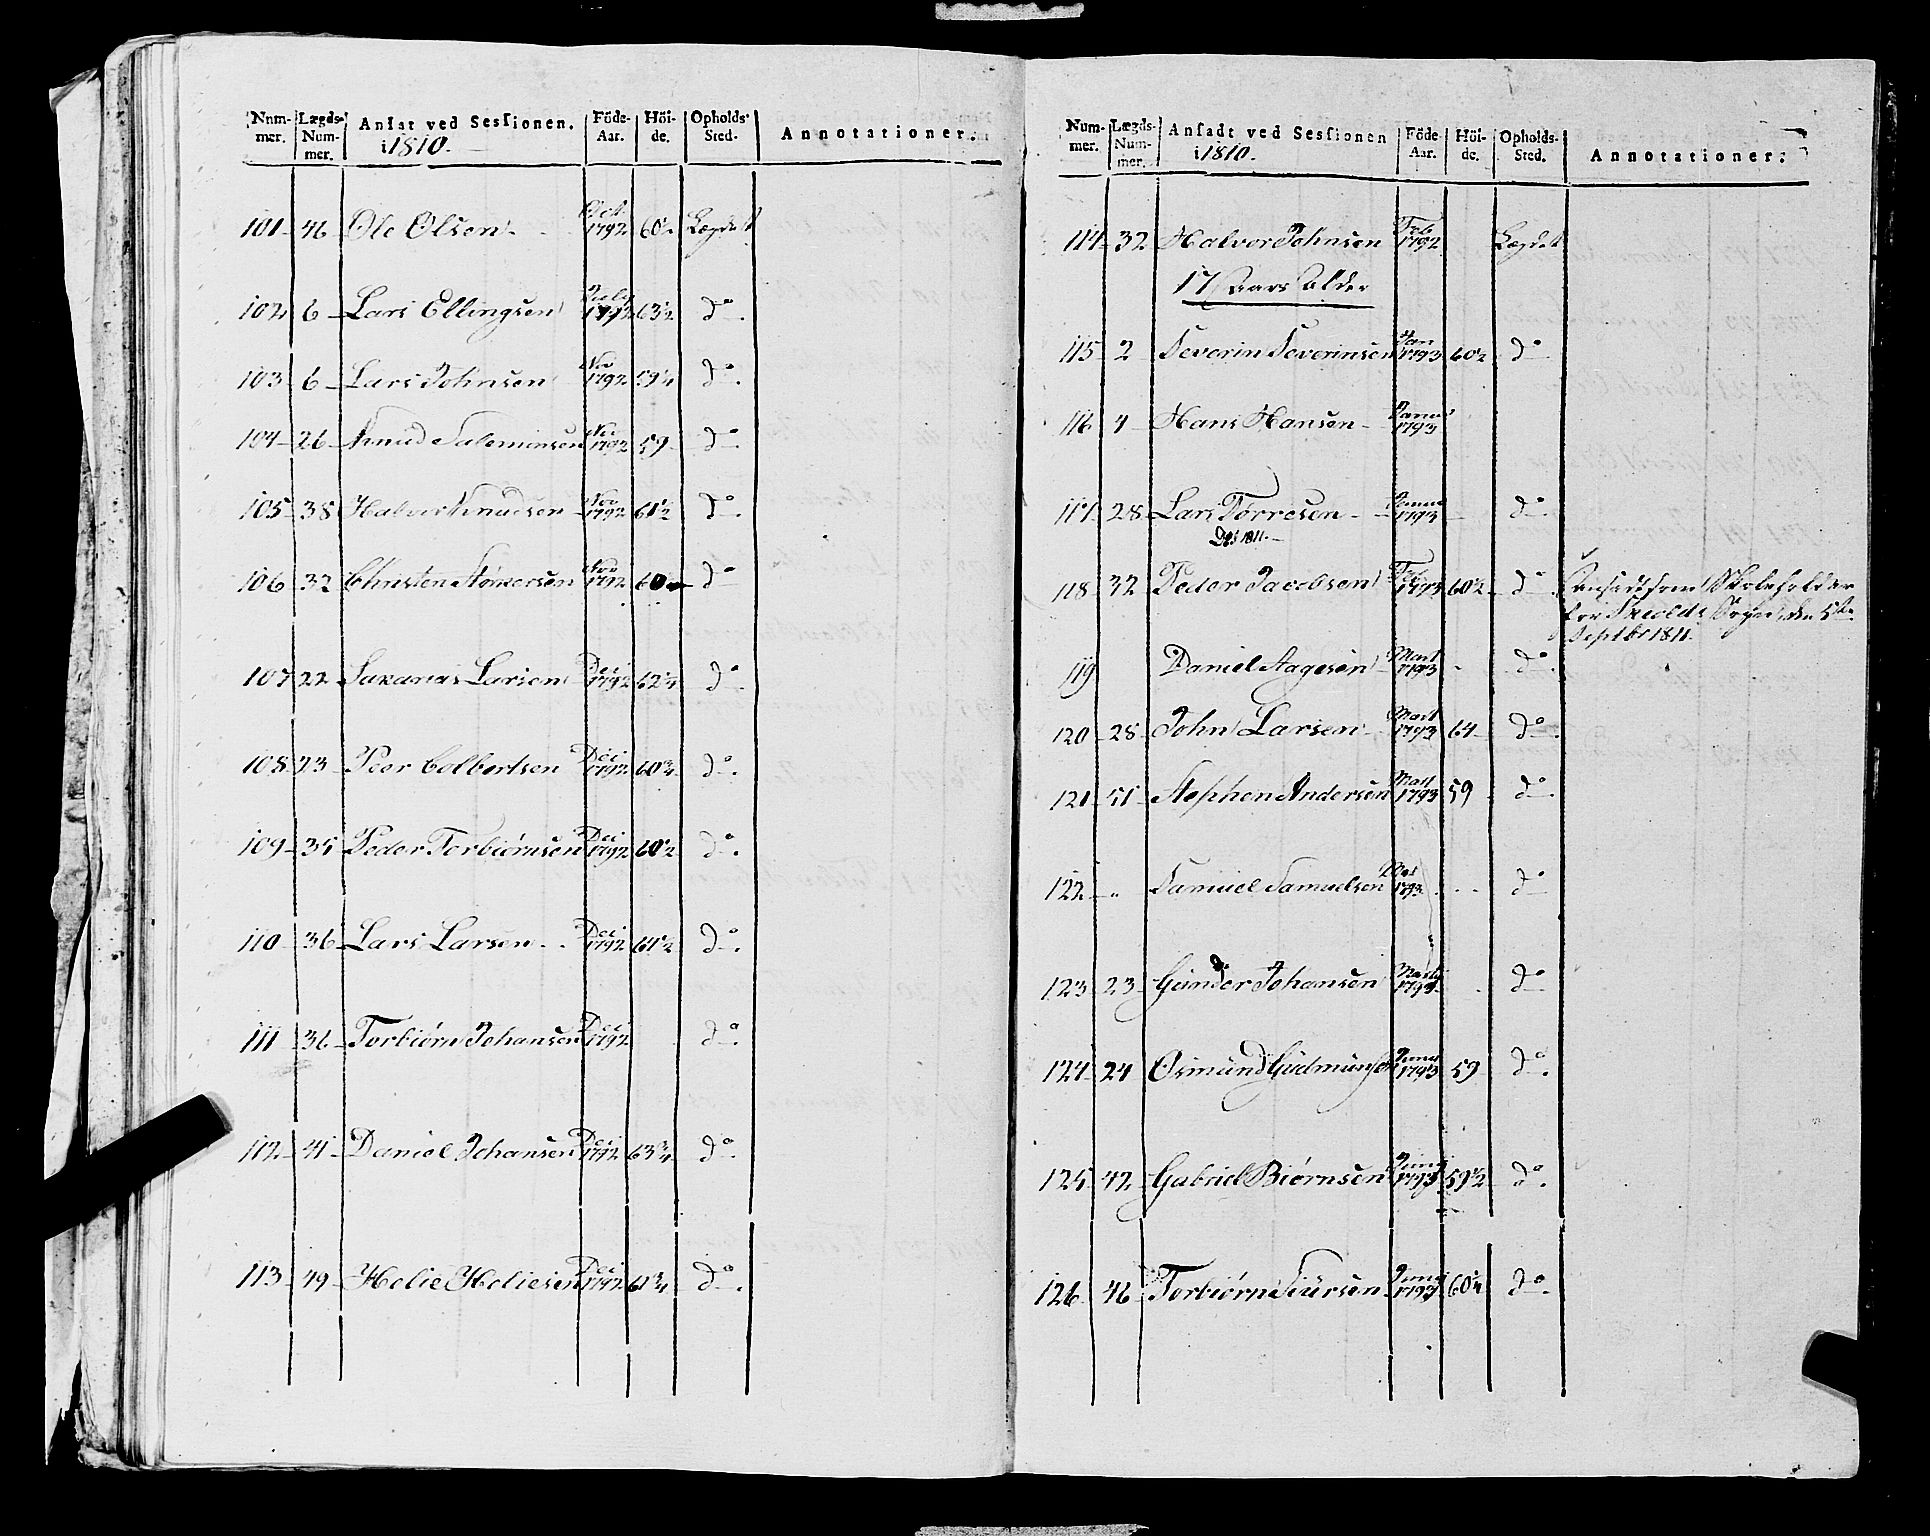 Num- Lægds- Ansat ved Sessionen. Föde Höi- Opholds-
mer. Num- i 1810. Aar. de. Sted. Annotationer.
mer.
101 46 Ole Olsen Oct 1792 60½ Lægdet
102 6 Lars Ellingsen July 1792 63½ do
103 6 Lars Johnsen Nov 1792 59¼ do
104 26 Knud Salomonsen Nov 1792 59 do
105 38 Halvor Knudsen Nov 1792 61½ do
106 32 Christen Nov 1792 60 do
107 22 Sakarias Larsen Dec 1792 62¼ do
108 23 Peer Colbertsen Dec 1792 60¾ do
109 35 Peder Torbiørnsen Dec 1792 60½ do
110 36 Lars Larsen Dec 1792 61½ do
111 36 Torbiørn Johansen Dec 1792 do
112 41 Daniel Johansen Dec 1792 63¾ do
113 49 Helie Heliesen Dec 1792 61¾ do
Num- Lægds- Ansadt ved Sessionen Föde Höi- Opholds-
mer. Num- i 1810. Aar. de. Sted. Annotationer.
mer.
114 32 Halvor Johnsen Feb 1792 Lægdet
17 Aars Alder
115 2 Severin Severinsen Jan 1793 60½ do
116 4 Hans Hansen 1793
117 28 Lars Torresen 1793 do
1811.
118 32 Peder Jacobsen Feb 1793 60½ do Ansadt som Skoleholder
for Sogn, den 5te
Septbr 1811.
119 Daniel Aagesen Mart 1793 do
120 28 John Larsen Mart 1793 64 do
121 51 Stephen Andersen May 1793 59 do
122 „ Samuel Samuelsen 1793 do
123 23 Gunder Johansen do
124 24 Osmund Gudmunsen 1793 59 do
125 42 Gabriel Biørnsen 1793 59½ do
126 46 Torbiørn Siursen 1793 60¼ do